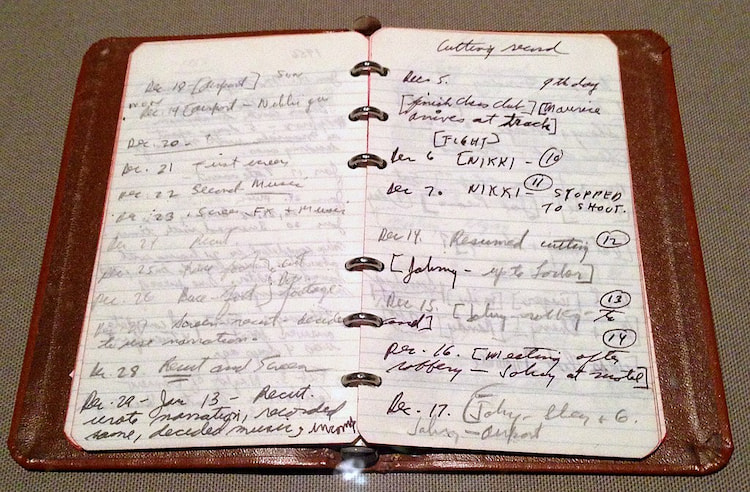 Dec 18 [airport] Sun
Dec 19 [airport -
Dec. 20 -
Dec. 21 First screen
Dec. 22 Second Music
Dec. 23. Screen, FX, + Music
Dec 24 Recut
Dec. 25 Race foot cut
Dec. 26 Race-foot footage
Screen-recut - decided
to use narration.
Dec 28 Recut and Screen
Dec. 29 - Jan 13 - Recut.
wrote narration, recorded
same, decided music,
Cutting record
Dec. 5. 9th day
[finish Chess Club] [Maurice
arrives at track]
[FIGHT]
Dec 6 [NIKKI - 10
Dec 7. NIKKI - 11 STOPPED
TO SHOOT.
Dec 14. Resumed cutting 12
[Johnny - up to
Dec 15. [Johnny - 13
end] 14
Dec. 16. [Meeting after
robbery - Johnny at motel]
Dec. 17. [Johnny + G.
Johnny - airport